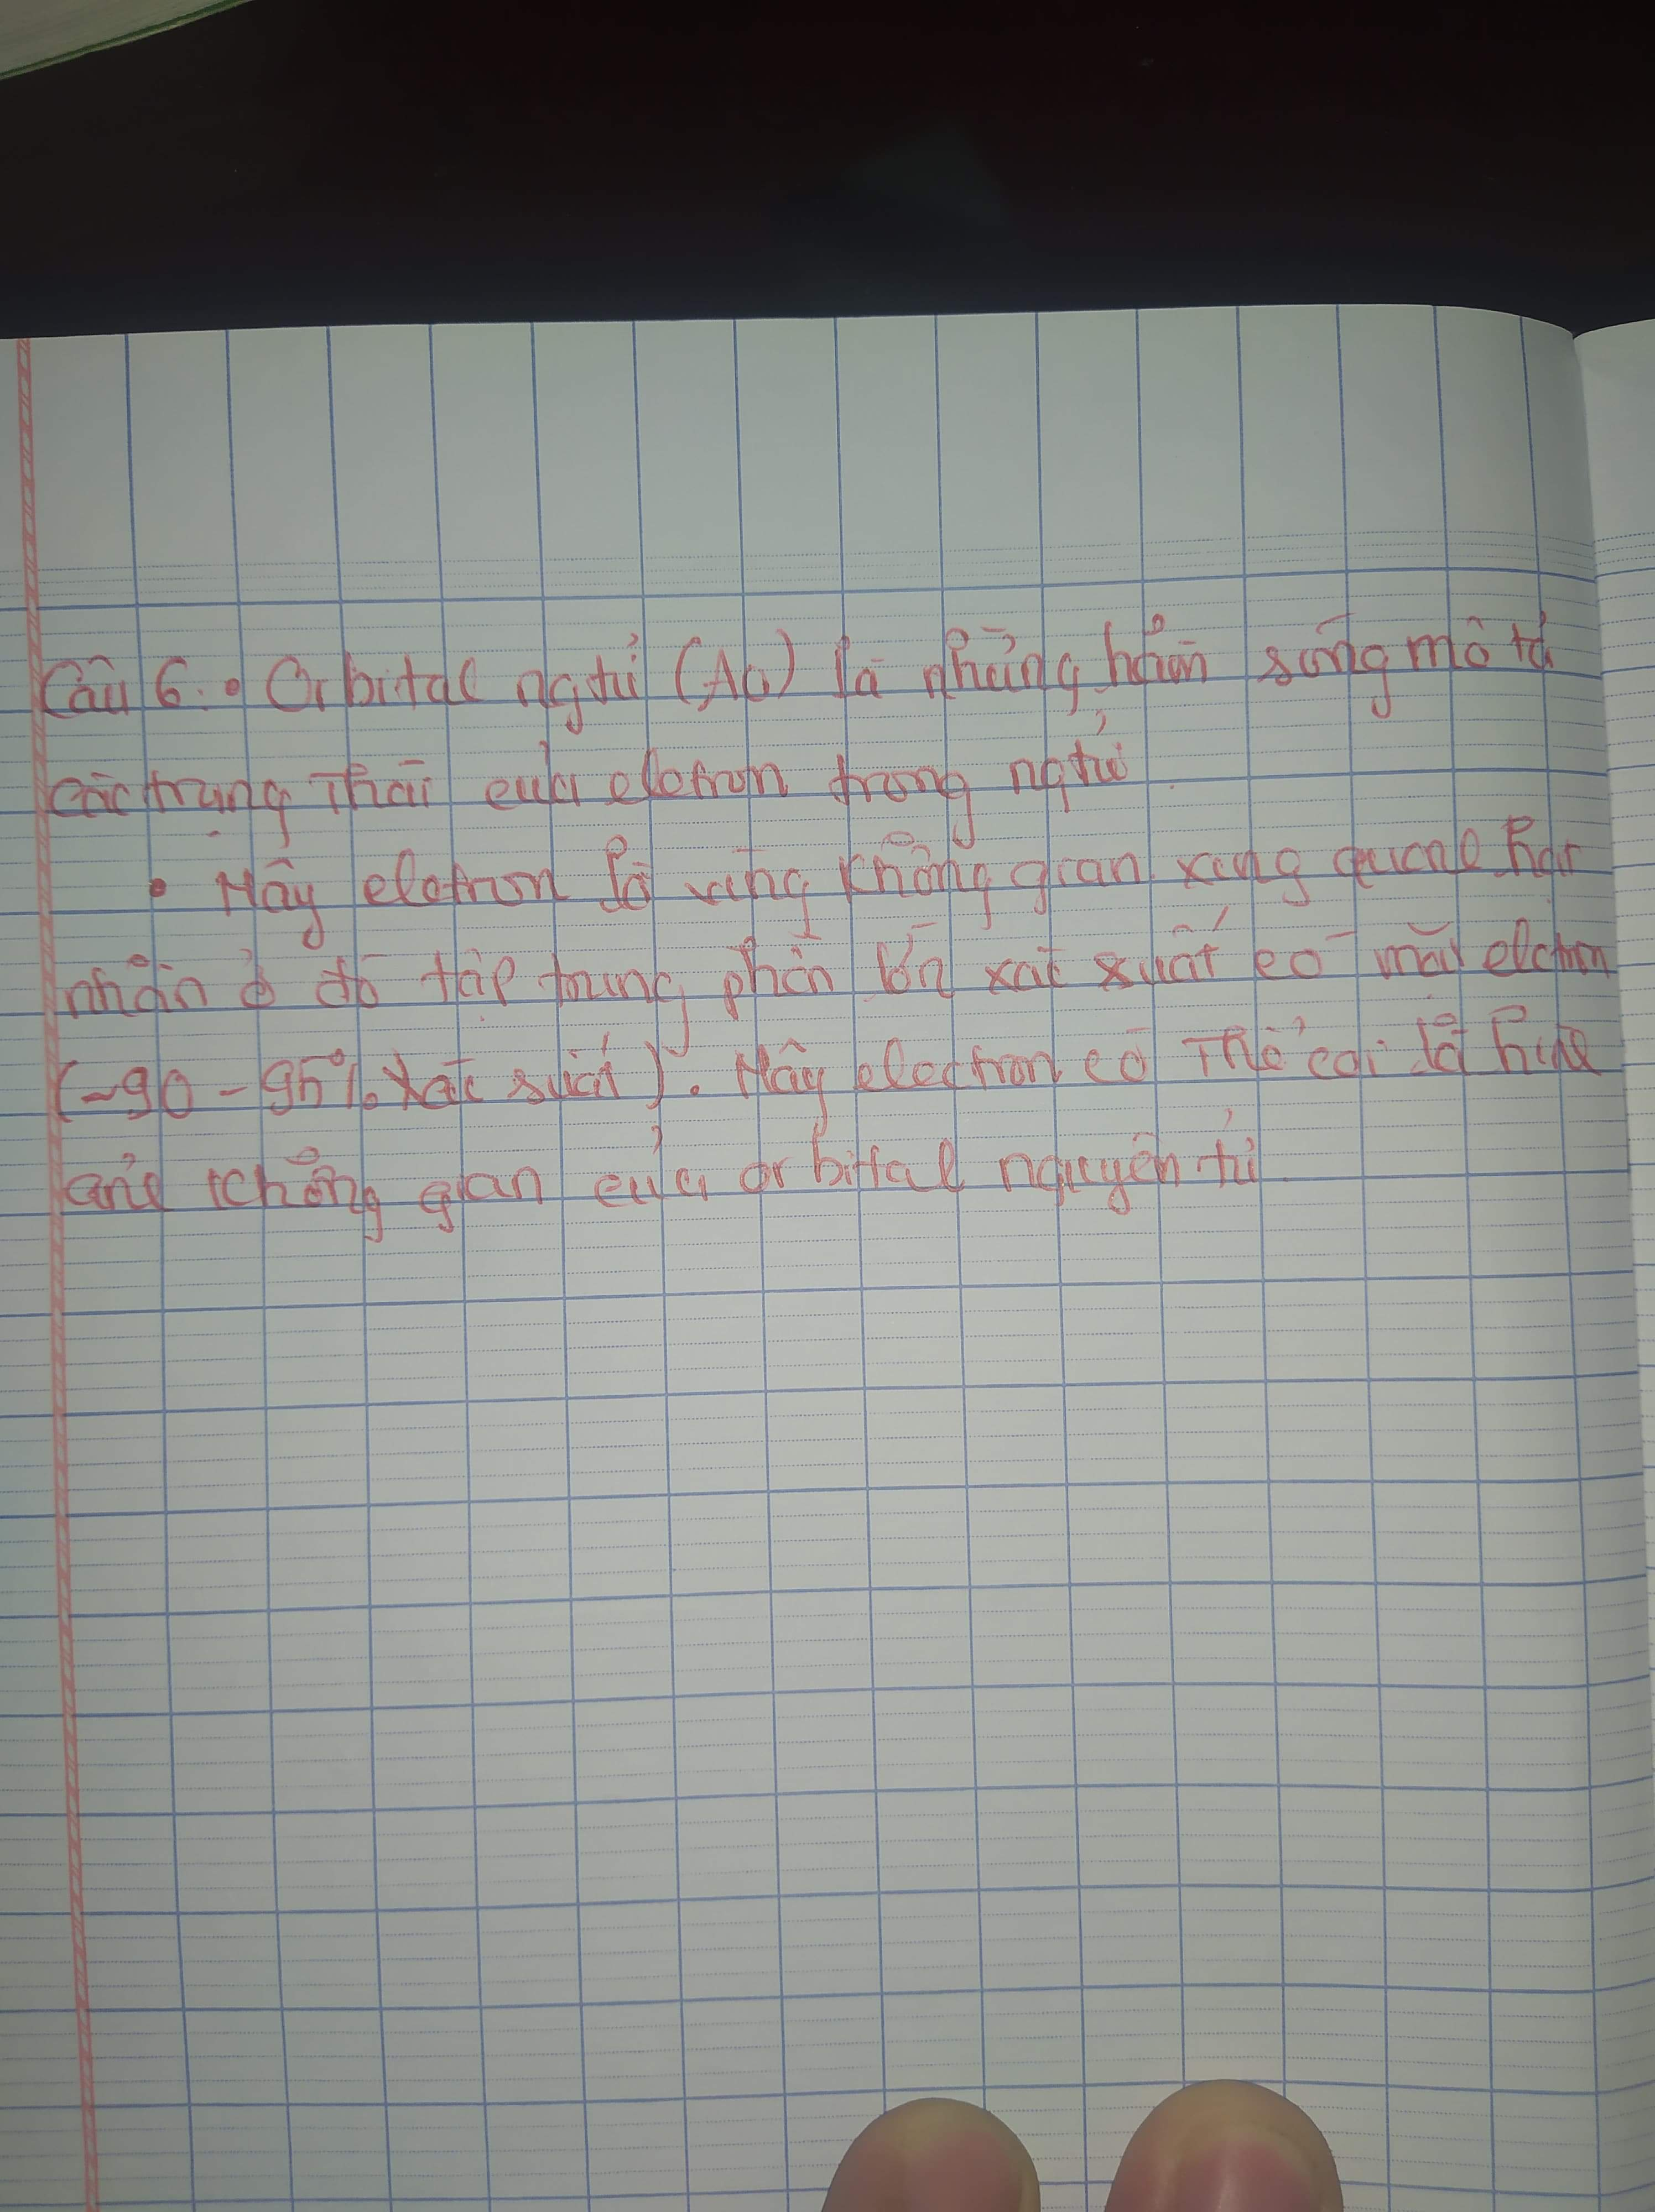 Câu 6. • Orbital ngtử (AO) là những hàm sóng mô tả
các trạng thái của eletron trong ngtử
• Mây eletron là vùng không gian xung quanh hạt
nhân ở đó tập trung phần lớn xác suất có mặt elctron
(~90 - 95% xác suất). Mây electron có thể coi là hình
ảnh không gian của orbital nguyên tử